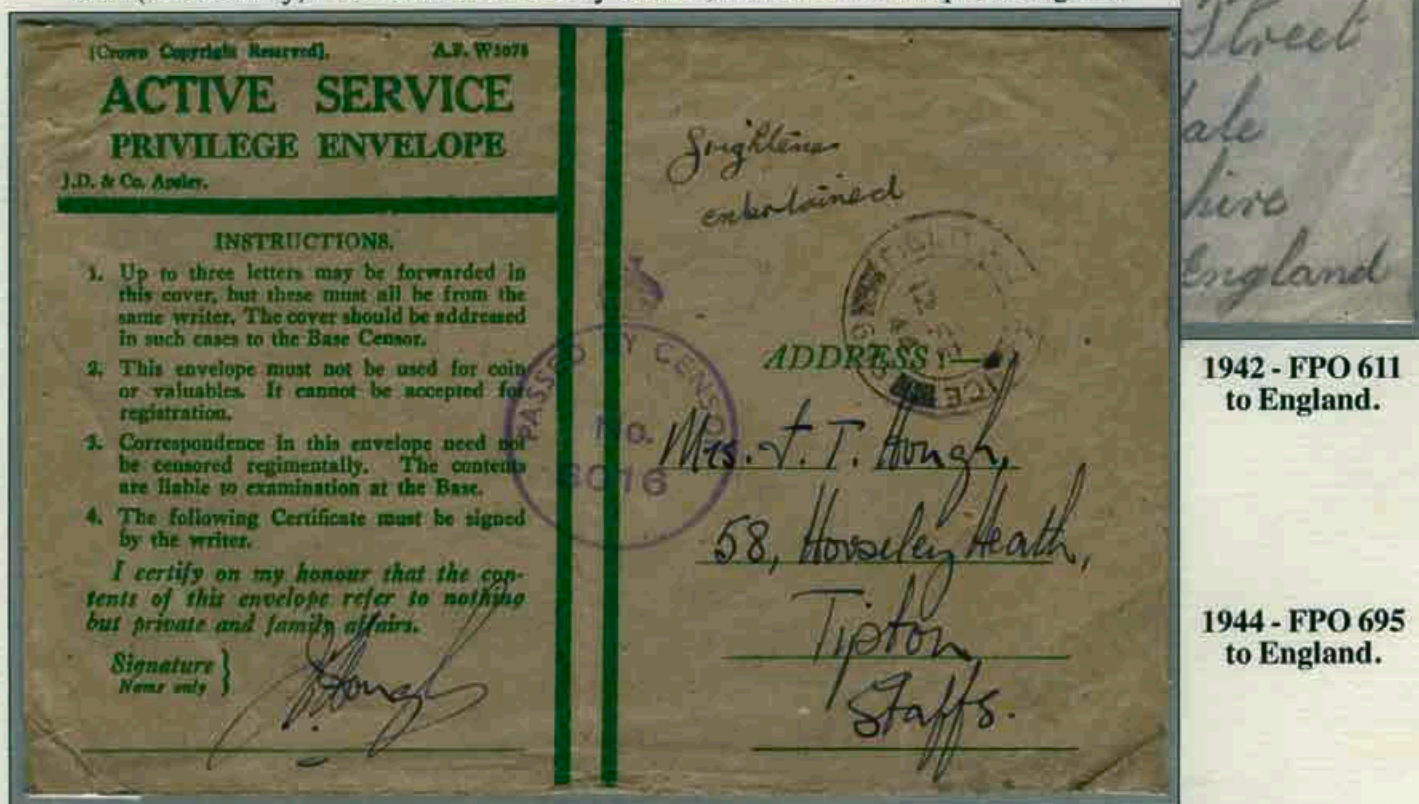 [Crown Copyright Reserved]. A.F. W3078
ACTIVE SERVICE
PRIVILEGE ENVELOPE
J.D. & Co. Apsley.
INSTRUCTIONS.
1. Up to three letters may be forwarded in
this cover, but these must all be from the
same writer. The cover should be addressed
in such cases to the Base Censor.
2. This envelope must not be used for coin
or valuables. It cannot be accepted for
registration.
3. Correspondence in this envelope need not
be censored regimentally. The contents
are liable to examination at the Base.
4. The following Certificate must be signed
by the writer.
I certify on my honour that the con-
tents of this envelope refer to nothing
but private and family affairs.
Signature }
Name only
Hough
PASSED BY CENSOR
No.
6016
entertained
ADDRESS :—
Mrs. J. T. Hough,
58, Horseley Heath,
Tipton
Staffs.
Street
ale
hire
England
1942 - FPO 611
to England.
1944 - FPO 695
to England.